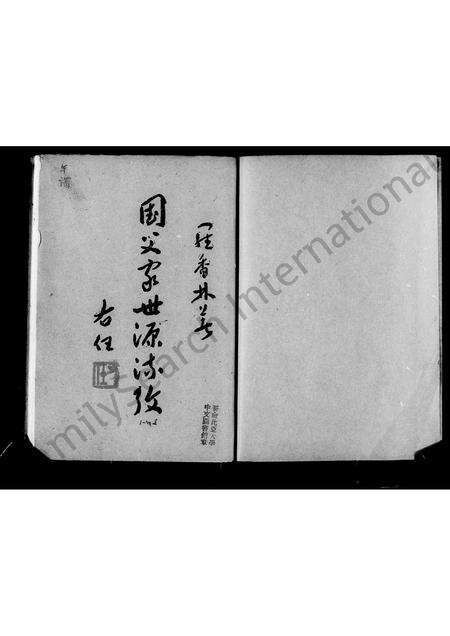 羅香林著
國父家世源流攷
右任
哥倫比亞大學
中文圖書館
milySearch International